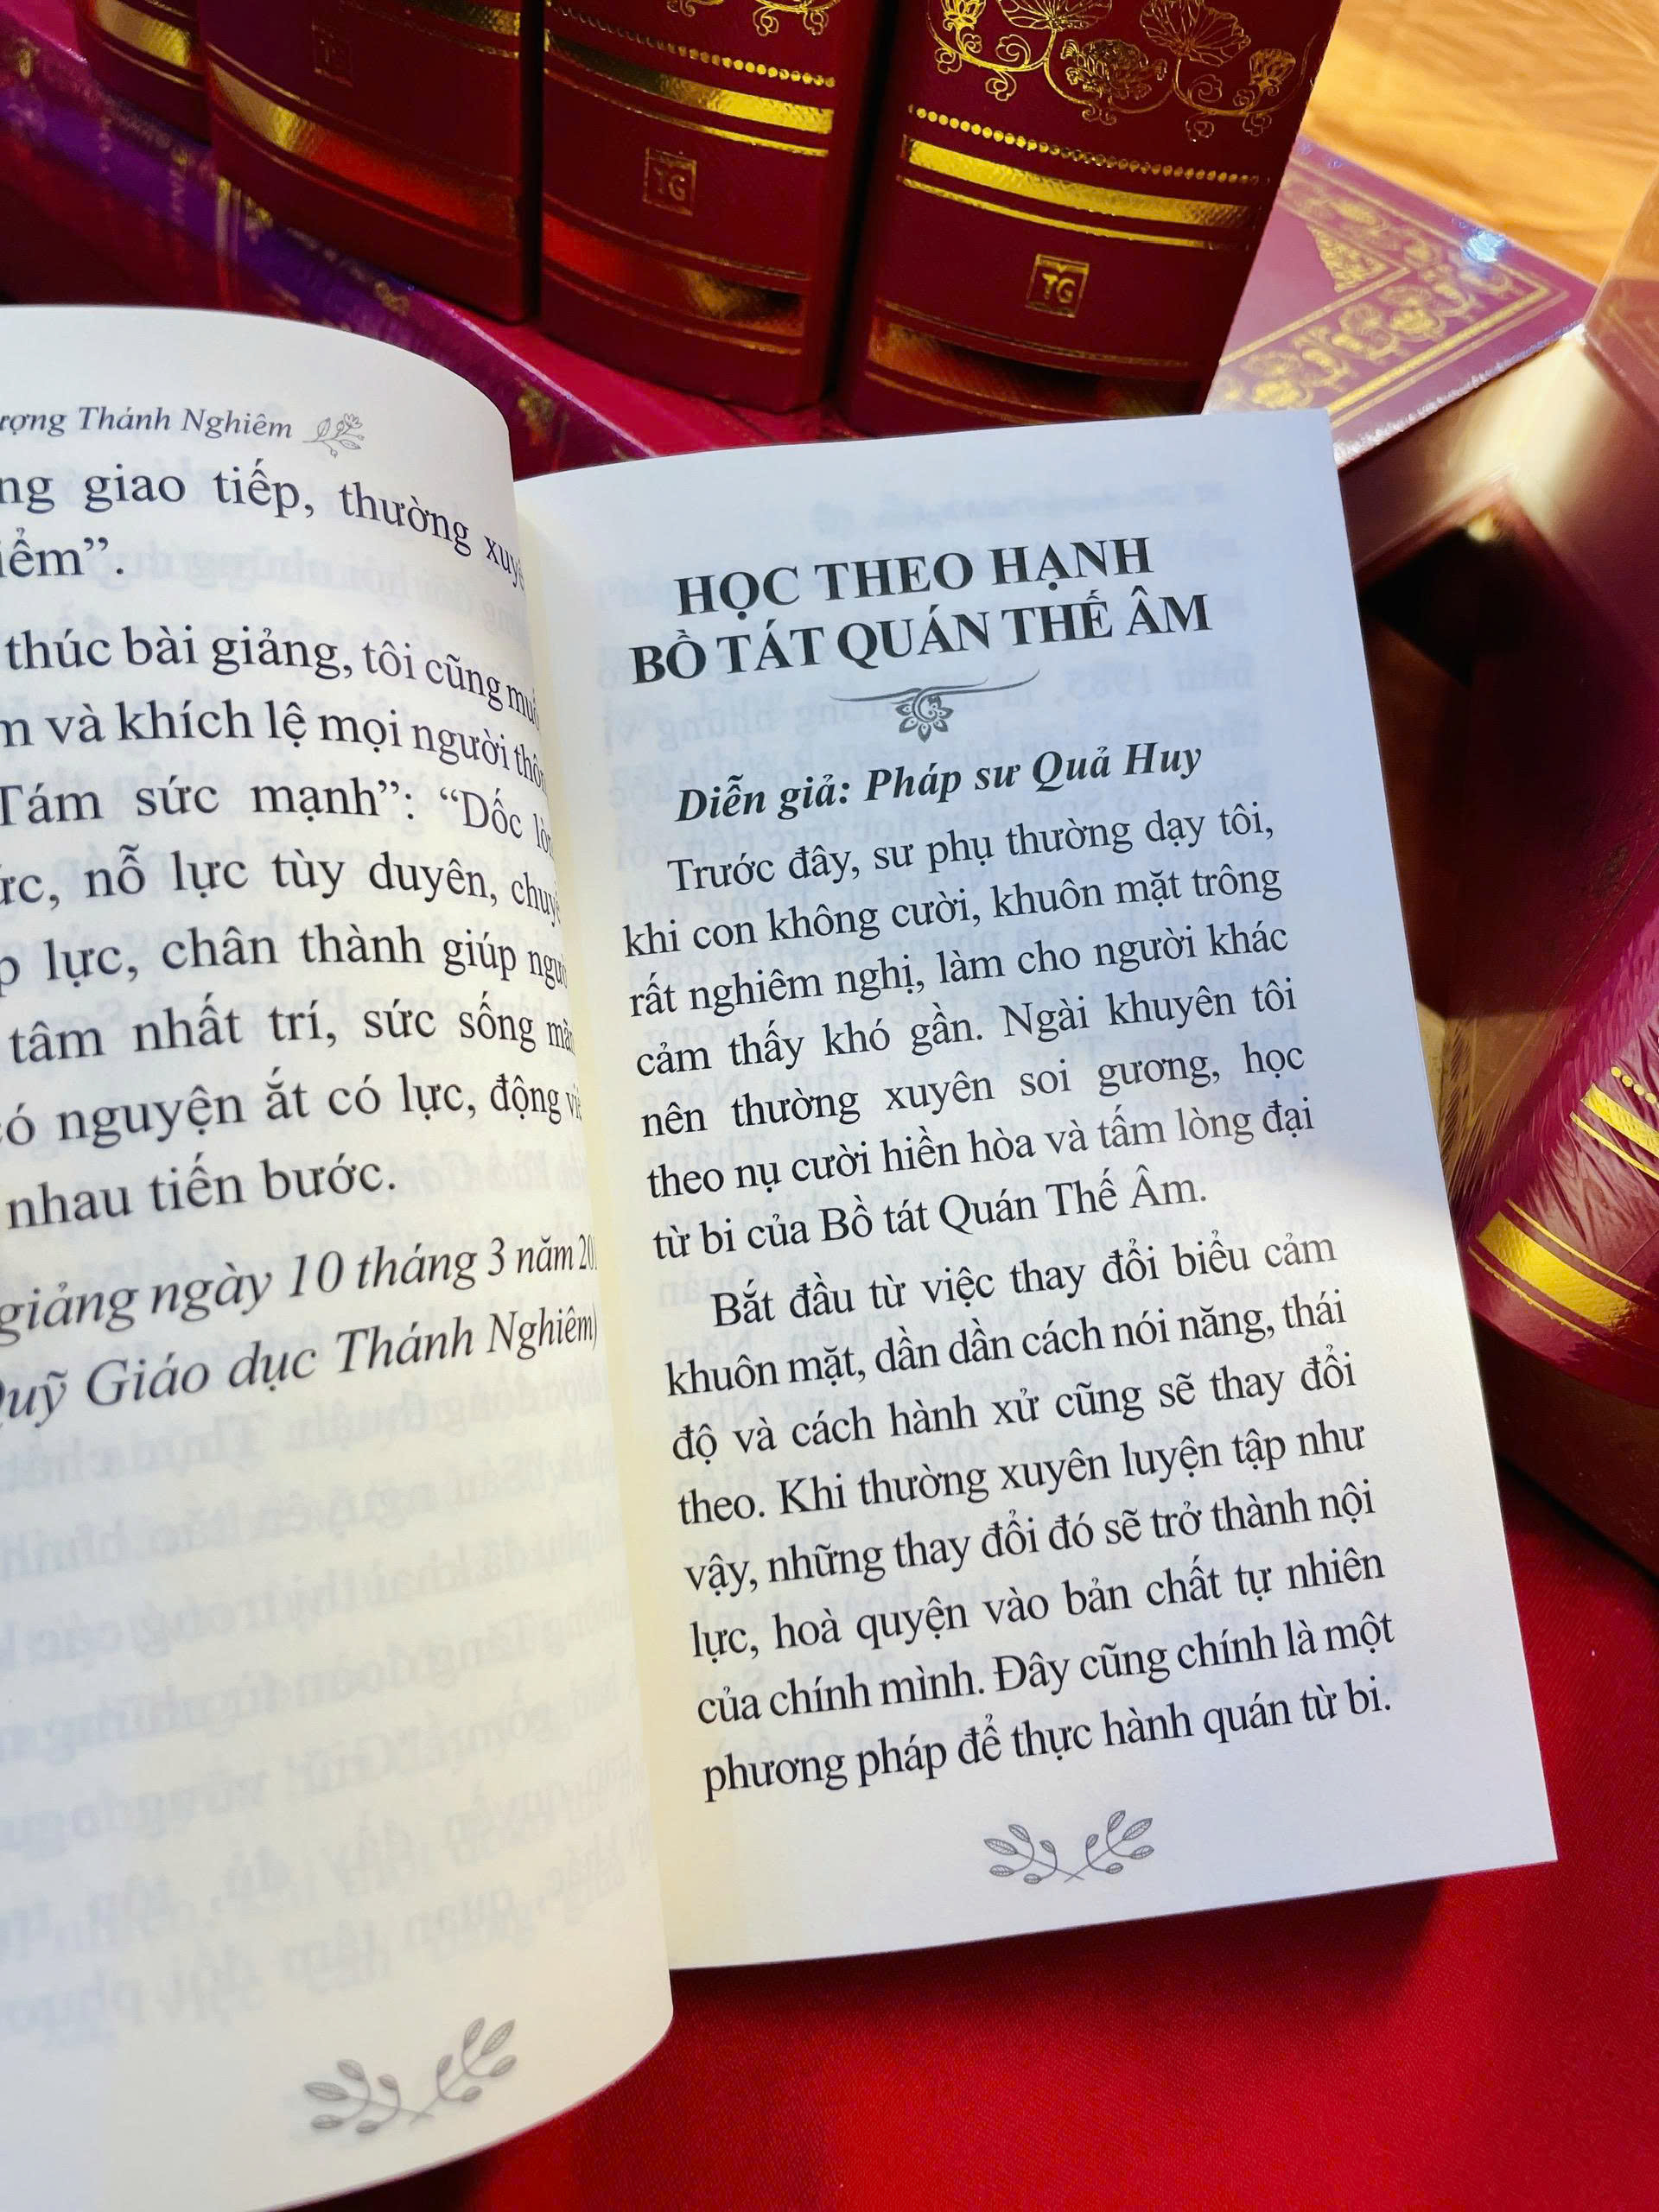 TG
TG
Thánh Nghiêm
giao tiếp, thường
thúc bài giảng, tôi cũng
và khích lệ mọi người
Tám sức mạnh”: “Dốc
nỗ lực tùy duyên,
lực, chân thành giúp
tâm nhất trí, sức sống
nguyện ắt có lực, động
nhau tiến bước.
giảng ngày 10 tháng 3 năm
Quỹ Giáo dục Thánh Nghiêm)
HỌC THEO HẠNH
BỒ TÁT QUÁN THẾ ÂM
Diễn giả: Pháp sư Quả Huy
Trước đây, sư phụ thường dạy tôi,
khi con không cười, khuôn mặt trông
rất nghiêm nghị, làm cho người khác
cảm thấy khó gần. Ngài khuyên tôi
nên thường xuyên soi gương, học
theo nụ cười hiền hòa và tấm lòng đại
từ bi của Bồ tát Quán Thế Âm.
Bắt đầu từ việc thay đổi biểu cảm
khuôn mặt, dần dần cách nói năng, thái
độ và cách hành xử cũng sẽ thay đổi
theo. Khi thường xuyên luyện tập như
vậy, những thay đổi đó sẽ trở thành nội
lực, hoà quyện vào bản chất tự nhiên
của chính mình. Đây cũng chính là một
phương pháp để thực hành quán từ bi.